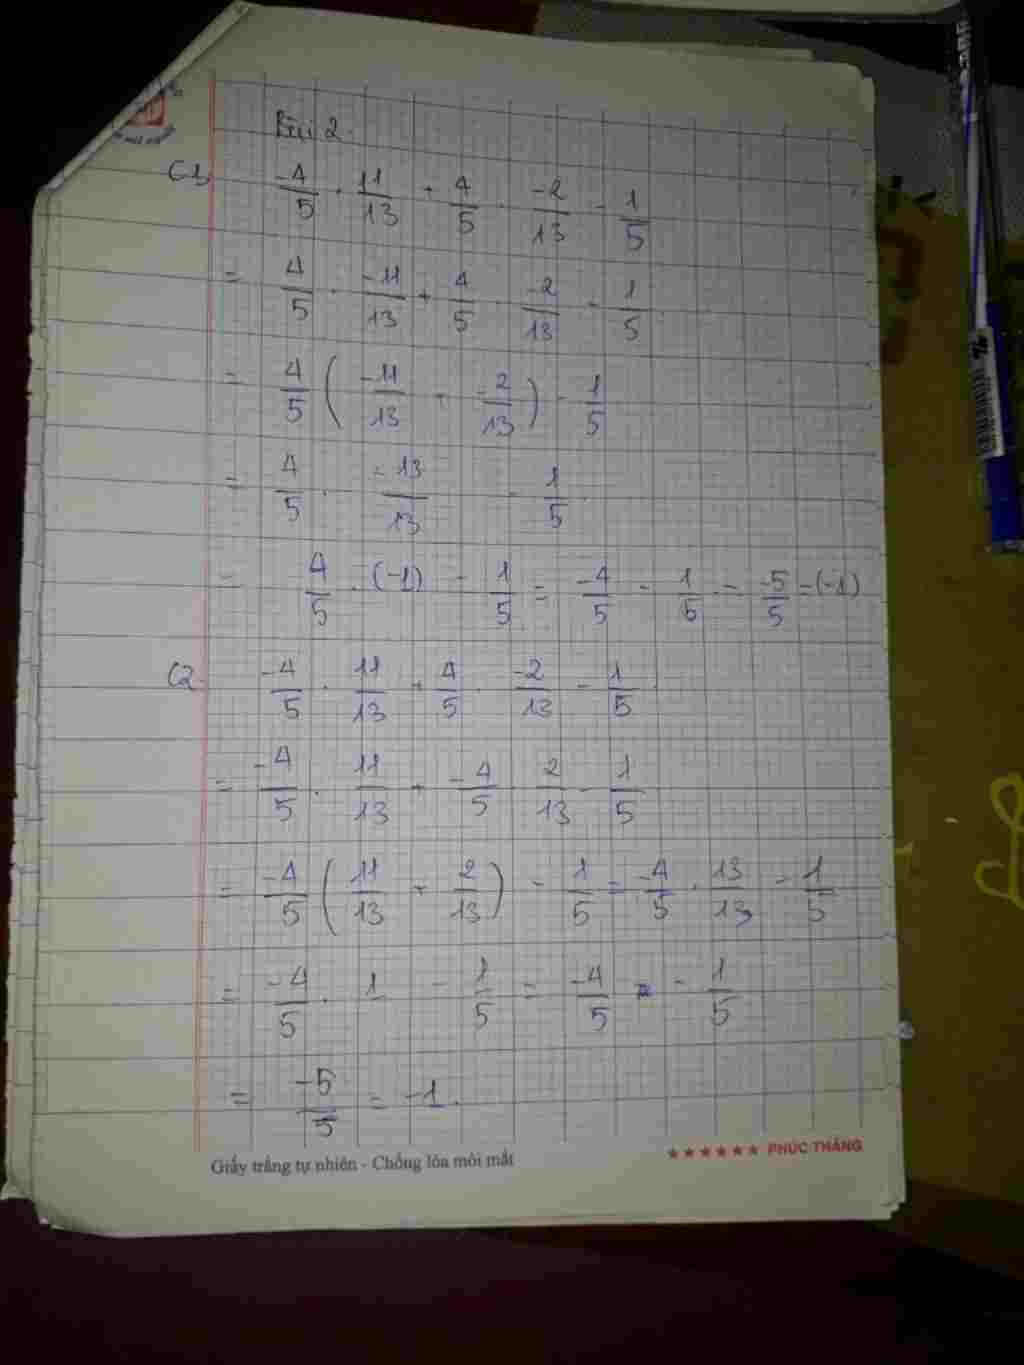 Bài 2.
C1, -4/5 · 11/13 + 4/5 · -2/13 - 1/5
= 4/5 · -11/13 + 4/5 · -2/13 - 1/5
= 4/5 ( -11/13 + -2/13 ) - 1/5
= 4/5 · -13/13 - 1/5
= 4/5 · (-1) - 1/5 = -4/5 - 1/5 = -5/5 = (-1)
C2. -4/5 · 11/13 + 4/5 · -2/13 - 1/5
= -4/5 · 11/13 + -4/5 · 2/13 - 1/5
= -4/5 ( 11/13 + 2/13 ) - 1/5 = -4/5 · 13/13 - 1/5
= -4/5 · 1 - 1/5 = -4/5 - 1/5
= -5/5 = -1.
Giấy trắng tự nhiên - Chống lóa mỏi mắt
★★★★★★ PHÚC THẮNG